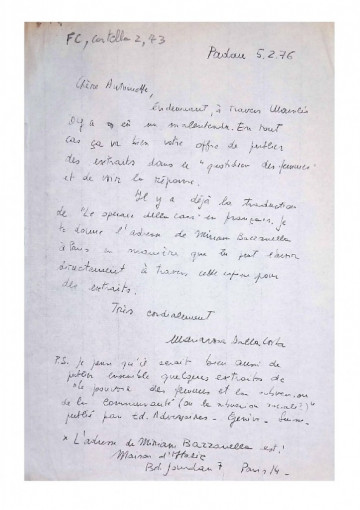 FC, cartella 2, 43
Padou 5.2.76
Chère Antoinette,
Evidemment, à travers
il y a eu un malentendu. En tout
cas ça va bien votre offre de publier
des extraits dans le "quotidien des femmes"
et de voir la réponse.
Il y a déjà la traduction
de "Le operaie della casa" en français. Je
te donne l'adresse de Miriam Bazzanella
à Paris en manière que tu peut l'avoir
directement à travers cette pour
des extraits.
Très cordialement
Mariarosa Dalla Costa
P.S. Je pense qu'il serait bien aussi de
publier ensemble quelques extraits de
"le pouvoir des femmes et la subversion
de la communauté (ou la subversion sociale)"
publié par Ed. Adversaires - Genève - Suisse.
* L'adresse de Miriam Bazzanella est:
Maison d'Italie
Bd Jourdan 7 Paris 14.